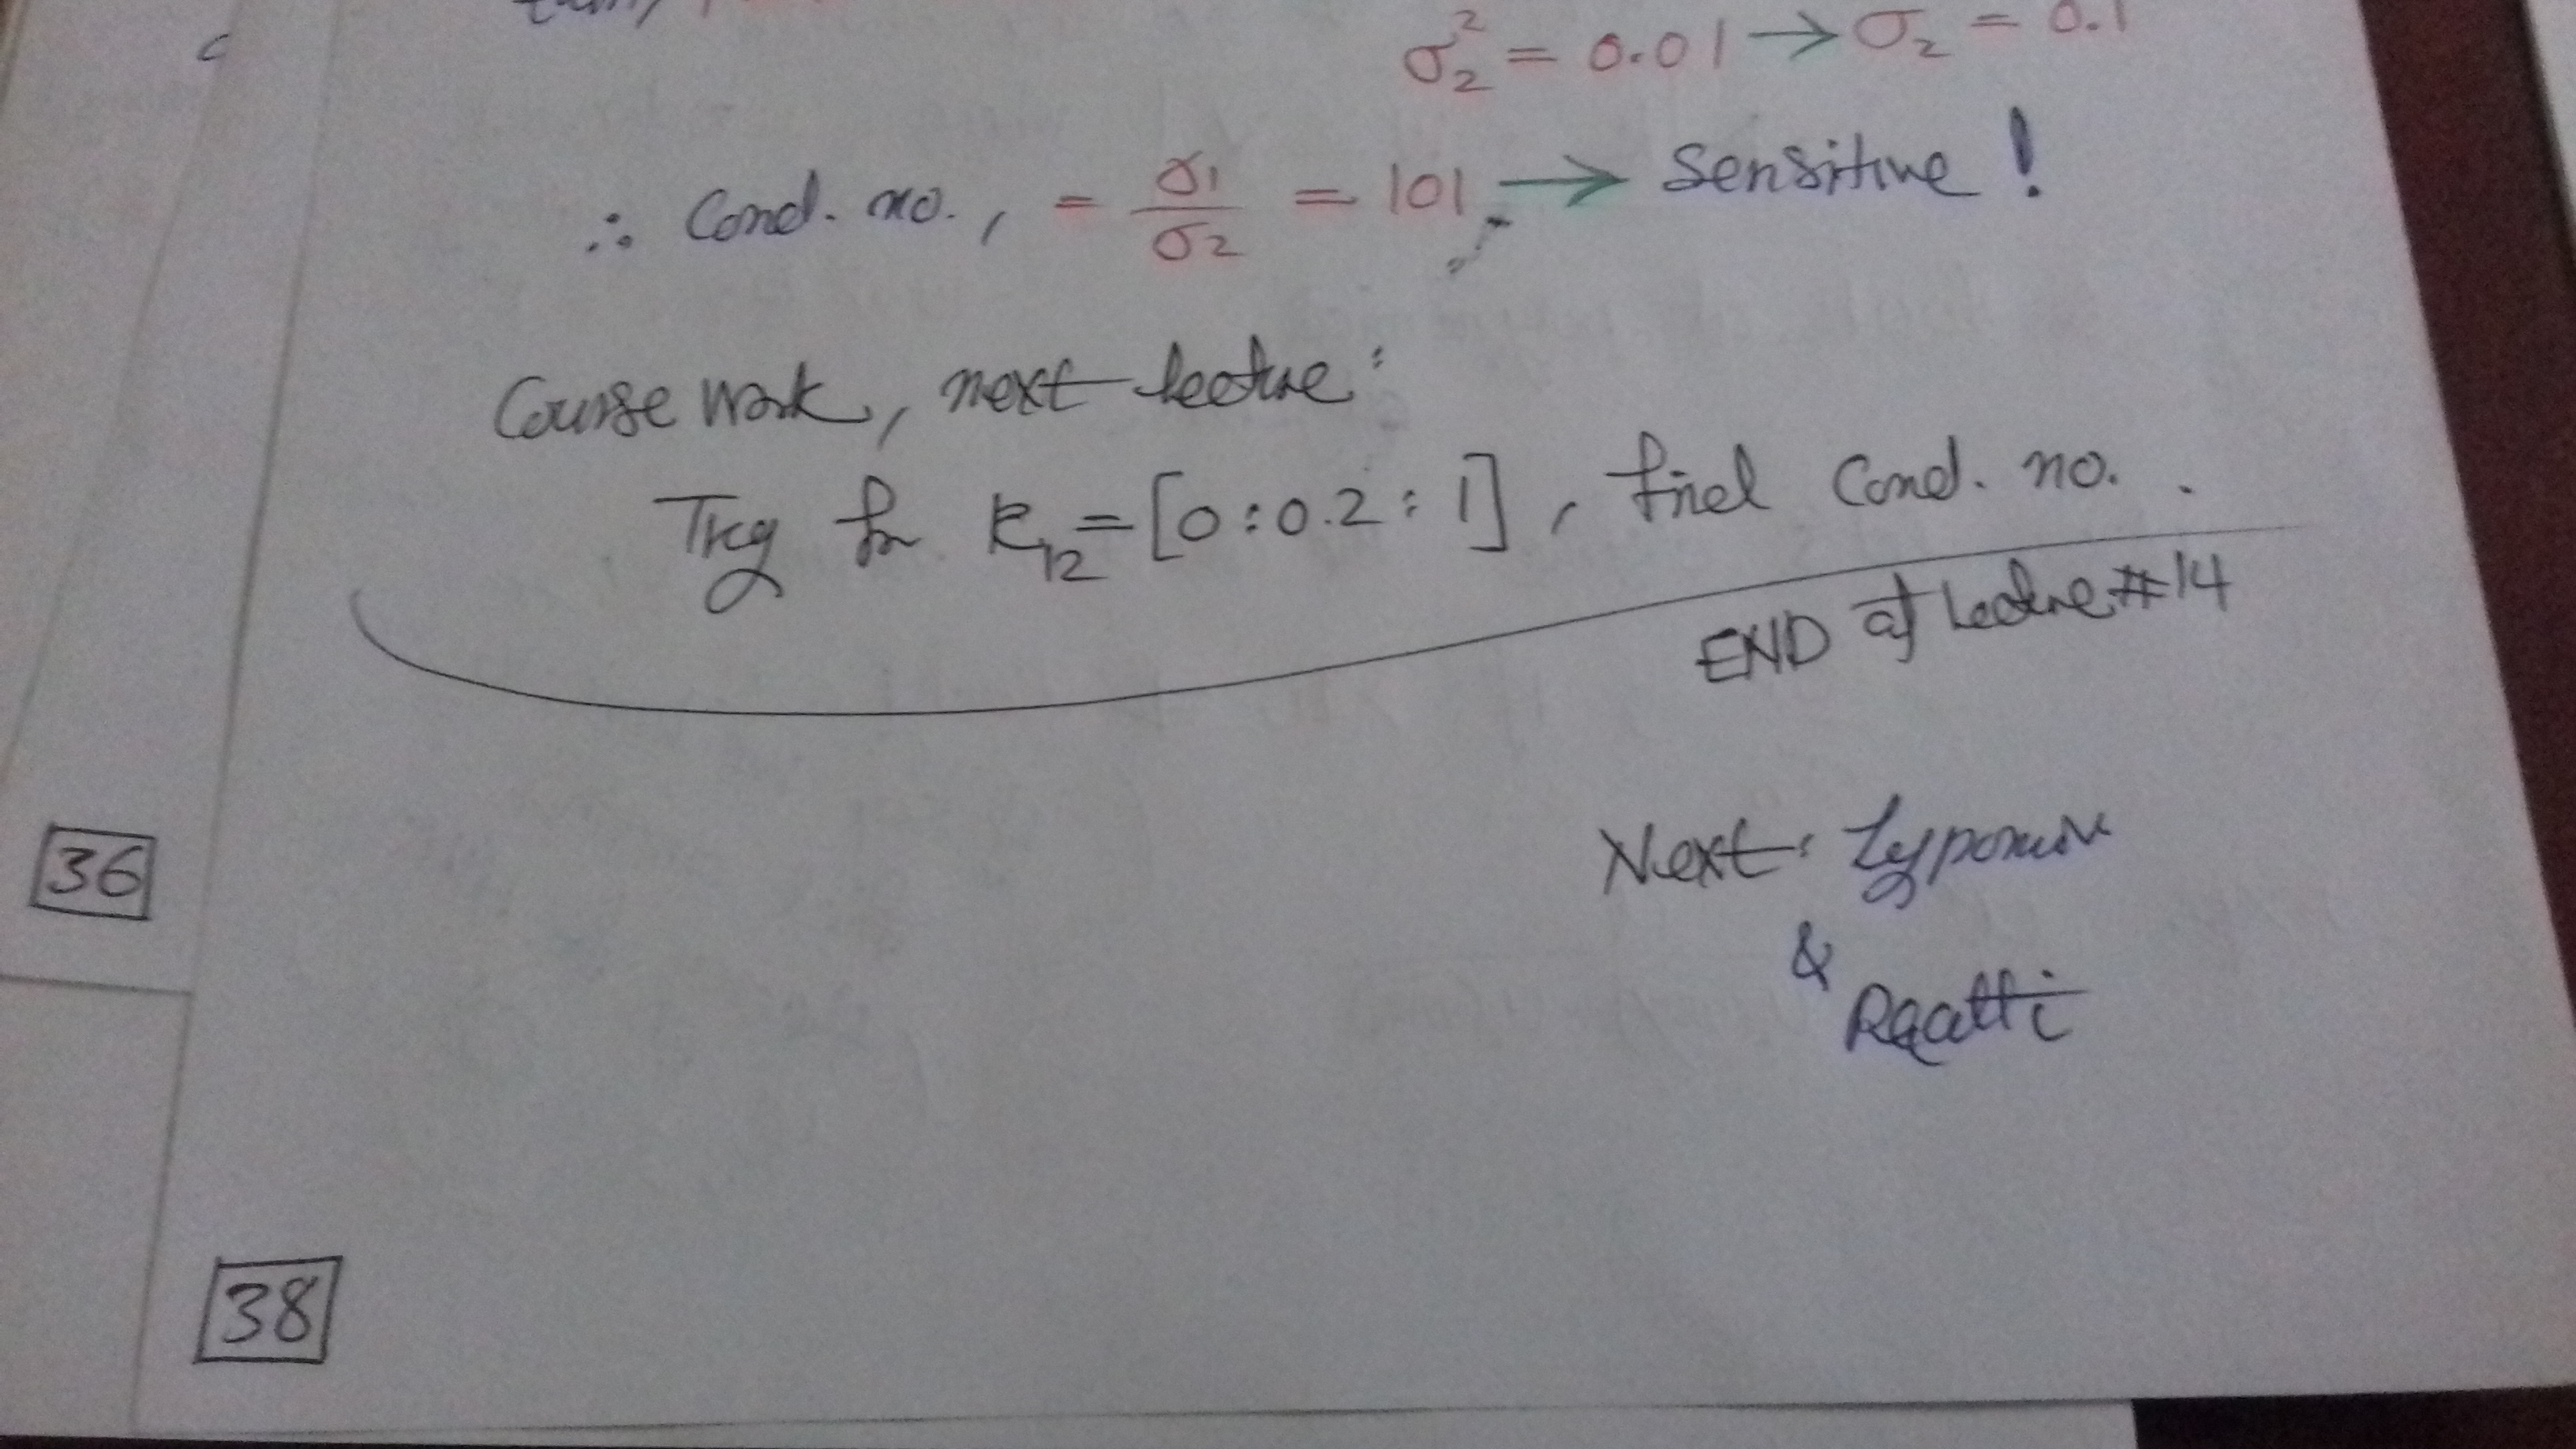 σ₂² = 0.01 → σ₂ = 0.1
∴ Cond. no., = σ1/σ2 = 101 → Sensitive!
Course work, next lecture:
Try for k₁₂ = [0 : 0.2 : 1], find Cond. no.
END of Lecture #14
Next:
&
36
38